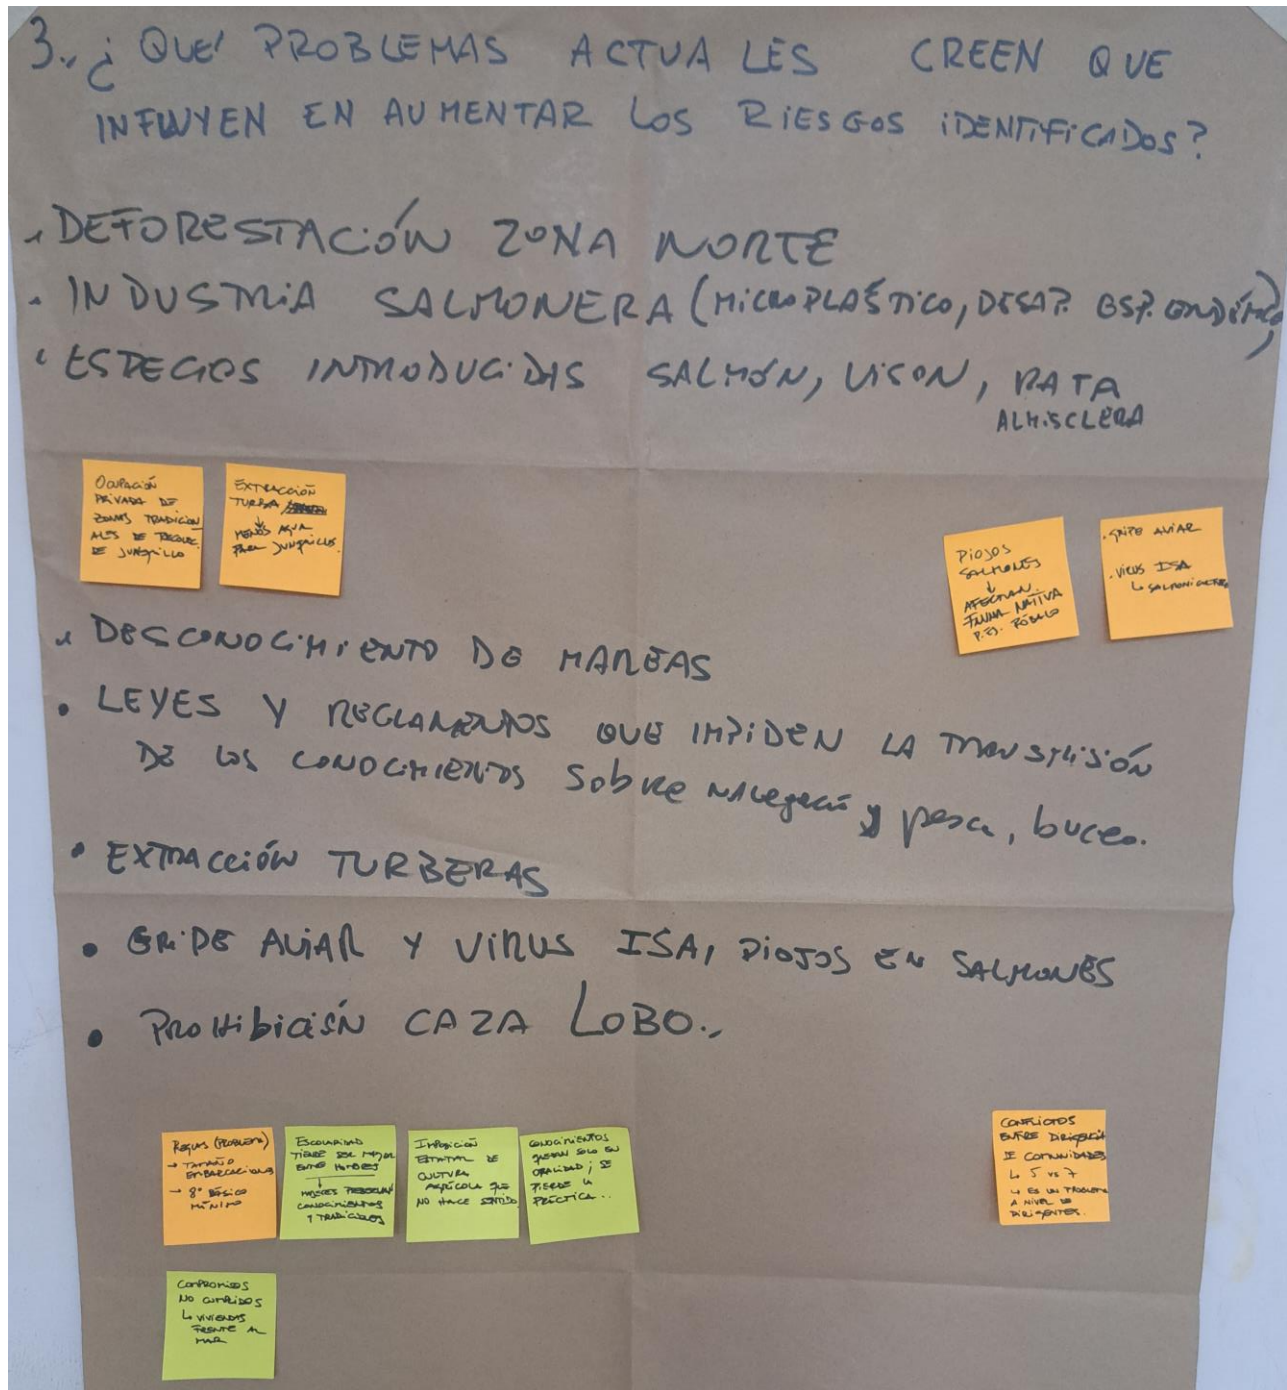 3. ¿QUE' PROBLEMAS ACTUALES CREEN QUE
INFLUYEN EN AUMENTAR LOS RIESGOS IDENTIFICADOS?
DEFORESTACIÓN ZONA NORTE
INDUSTRIA SALMONERA (MICROPLÁSTICO, DESAP. ESP. ENDÉMICO)
ESPECIES INTRODUCIDAS SALMÓN, VISON, RATA
ALMISCLERA
OCUPACIÓN
PRIVADA DE
ZONAS TRADICION
ALES DE
DE JUNQUILLO
EXTRACCIÓN
TURBA
↓
MENOS AGUA
PARA JUNQUILLOS.
PIOJOS
SALMONES
↓
AFECTAN
FAUNA NATIVA
P.EJ. RÓBALO
. GRIPE AVIAR
. VIRUS ISA
DESCONOCIMIENTO DE MAREAS
• LEYES Y REGLAMENTOS QUE IMPIDEN LA TRANSMISIÓN
DE LOS CONOCIMIENTOS SOBRE NAVEGACIÓN y pesca, buceo.
• EXTRACCIÓN TURBERAS
• GRIPE AVIAR Y VIRUS ISA, PIOJOS EN SALMONES
• PROHIBICIÓN CAZA LOBO.
REGLAS (PROBLEMA)
→ TAMAÑO
EMBARCACIONES
→ 8° BÁSICO
MÍNIMO
ESCOLARIDAD
TIENDE SER MAYOR
ENTRE HOMBRES
↓
MUJERES
CONOCIMIENTOS
Y TRADICIONES
IMPOSICIÓN
ESTATAL DE
CULTURA
AGRÍCOLA QUE
NO HACE SENTIDO
CONOCIMIENTOS
QUEDAN SOLO EN
ORALIDAD; SE
PIERDE LA
PRÁCTICA...
CONFLICTOS
ENTRE DIRIGENCIA
DE COMUNIDADES
↳ 5 VS 7
↳ ES UN PROBLEMA
A NIVEL DE
DIRIGENTES.
COMPROMISOS
NO CUMPLIDOS
↳ VIVIENDAS
FRENTE AL
MAR